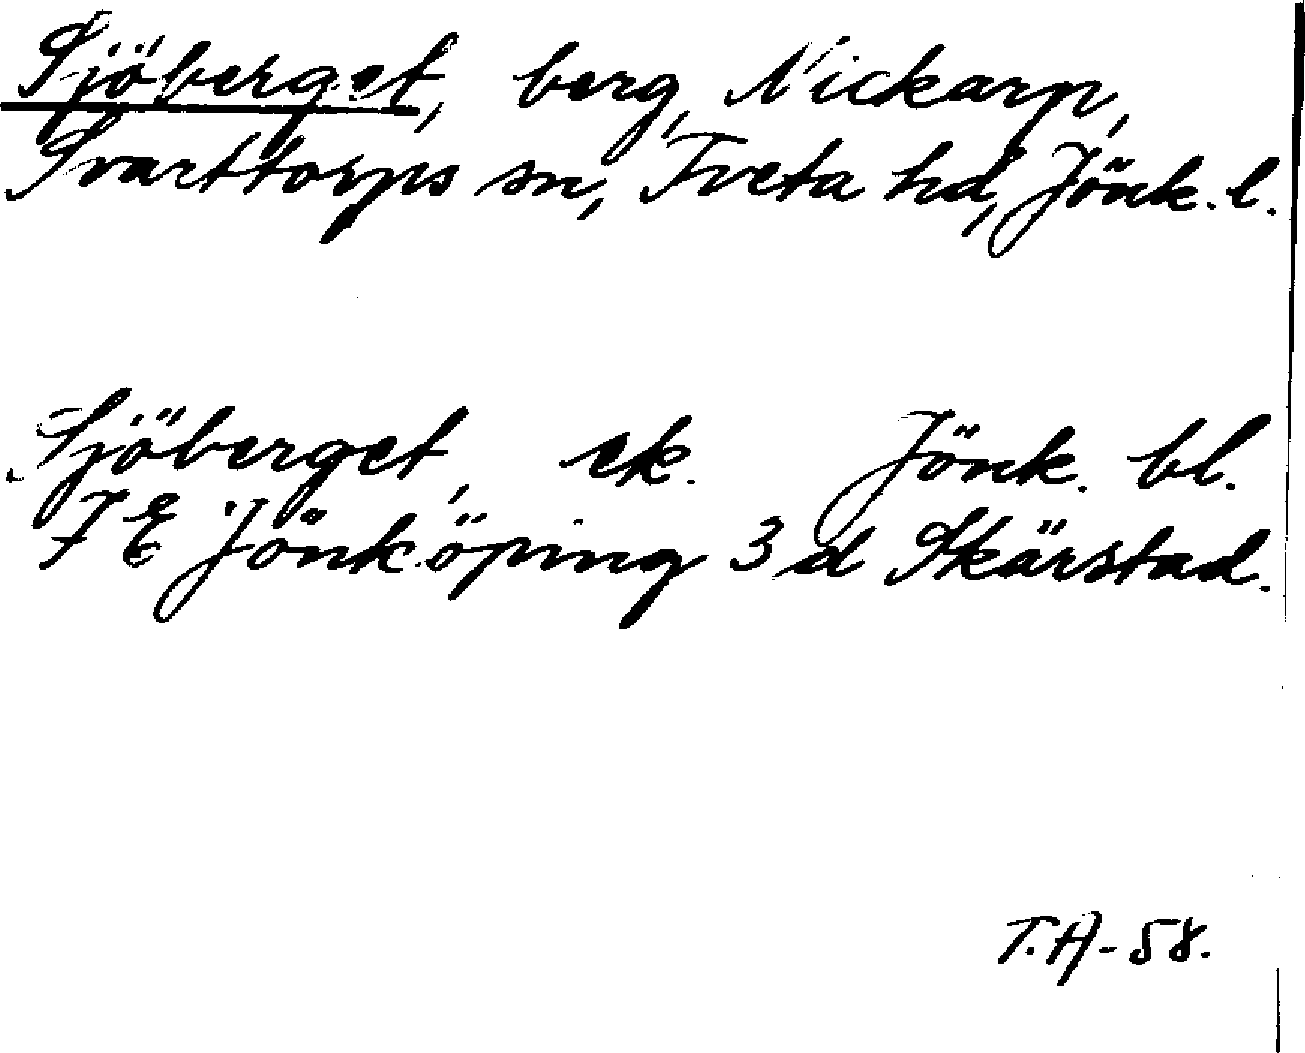 Sjöberget, berg, Nickarp,
Svarttorps sn, Tveta hd, Jönk. l.
Sjöberget, ek. Jönk. bl.
7 E Jönköping 3 d Skärstad.
T.A-58.